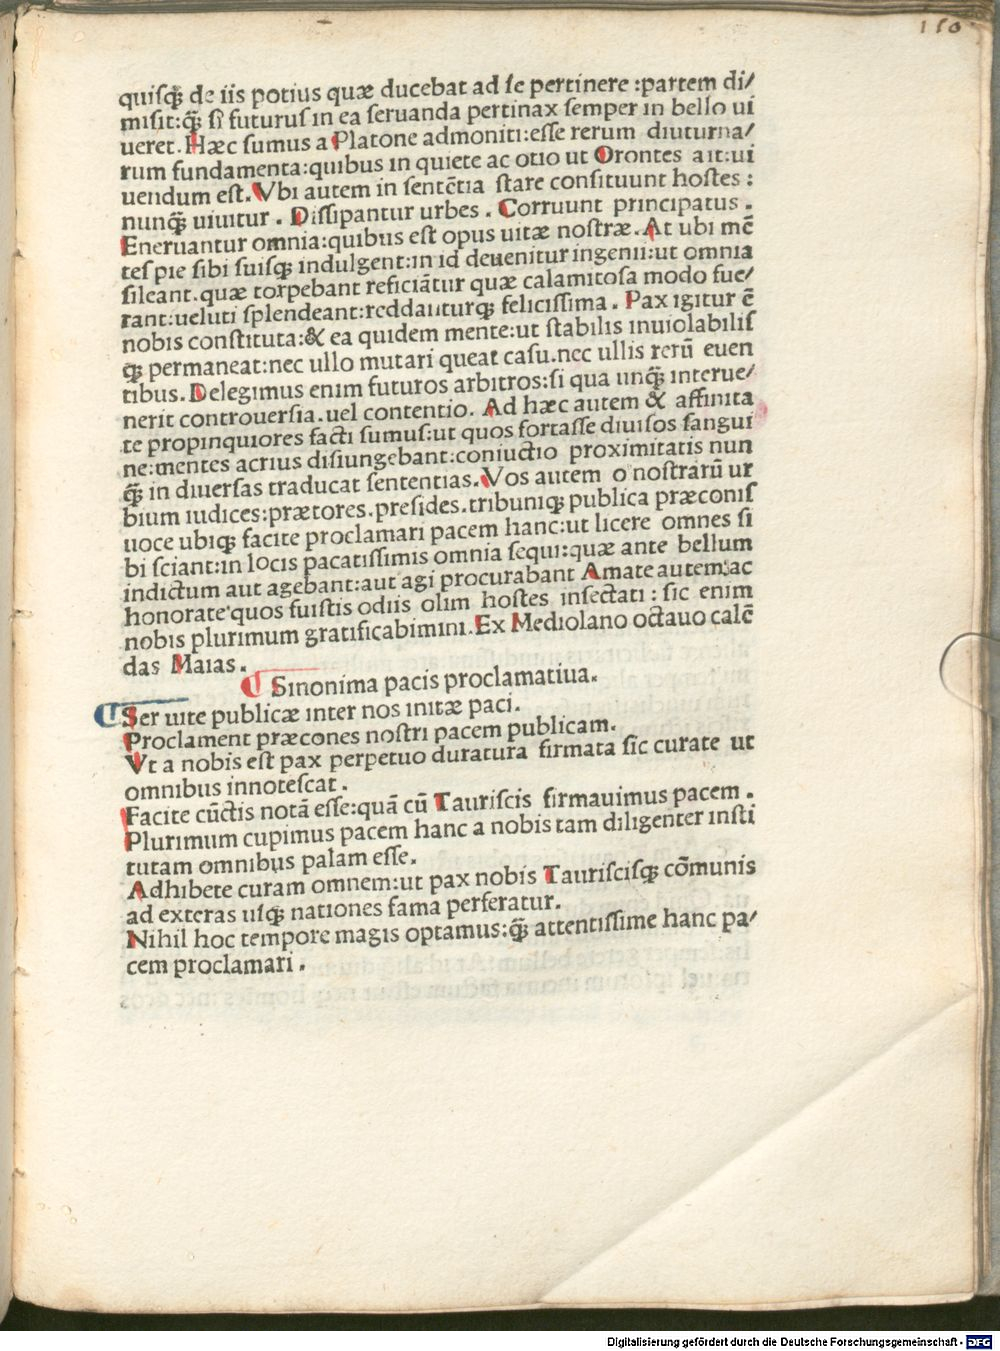 150
quiſqꝫ de iis potius quæ ducebat ad ſe pertinere :partem di/
miſit:q̃ꝫ ſi futuruſ in ea ſeruanda pertinax ſemper in bello ui
ueret. Hæc ſumus a Platone admoniti:eſſe rerum diuturna/
rum fundamenta:quibus in quiete ac otio ut Orontes ait:ui
uendum eſt. Vbi autem in ſentētia ſtare conſituunt hoſtes :
nunq̃ꝫ uiuitur . Diſſipantur urbes . Corruunt principatus .
Eneruantur omnia:quibus eſt opus uitæ noſtræ. At ubi mē
teſ pie ſibi ſuiſqꝫ indulgent:in id deuenitur ingenii:ut omnia
ſileant.quæ torpebant reficiātur quæ calamitoſa modo fue/
rant:ueluti ſplendeant:reddanturqꝫ feliciſſima . Pax igitur ē
nobis conſtituta:& ea quidem mente:ut ſtabilis inuiolabiliſ
qꝫ permaneat:nec ullo mutari queat caſu.nec ullis rerū euen
tibus. Delegimus enim futuros arbitros:ſi qua unq̃ꝫ interue/
nerit controuerſia.uel contentio. Ad hæc autem & affinita
te propinquiores facti ſumuſ:ut quos fortaſſe diuiſos ſangui
ne:mentes acrius diſiungebant:coniuctio proximitatis nun
q̃ꝫ in diuerſas traducat ſententias. Vos autem o noſtrarū ur
bium iudices:prætores.preſides.tribuniqꝫ publica præconiſ
uoce ubiqꝫ facite proclamari pacem hanc:ut licere omnes ſi
bi ſciant:in locis pacatiſſimis omnia ſequi:quæ ante bellum
indictum aut agebant:aut agi procurabant Amate autem:ac
honorate quos fuiſtis odiis olim hoſtes inſectati : ſic enim
nobis plurimum gratificabimini. Ex Mediolano octauo calē
das Maias .
¶ Sinonima pacis proclamatiua.
¶ Ser uite publicæ inter nos initæ paci.
Proclament præcones noſtri pacem publicam.
Vt a nobis eſt pax perpetuo duratura firmata ſic curate ut
omnibus innoteſcat .
Facite cūctis notā eſſe:quā cū Tauriſcis firmauimus pacem .
Plurimum cupimus pacem hanc a nobis tam diligenter inſti
tutam omnibus palam eſſe.
Adhibete curam omnem:ut pax nobis Tauriſciſqꝫ cōmunis
ad exteras uſqꝫ nationes fama perferatur.
Nihil hoc tempore magis optamus:q̃ꝫ attentiſſime hanc pa/
cem proclamari .
Digitalisierung gefördert durch die Deutsche Forschungsgemeinschaft - DFG